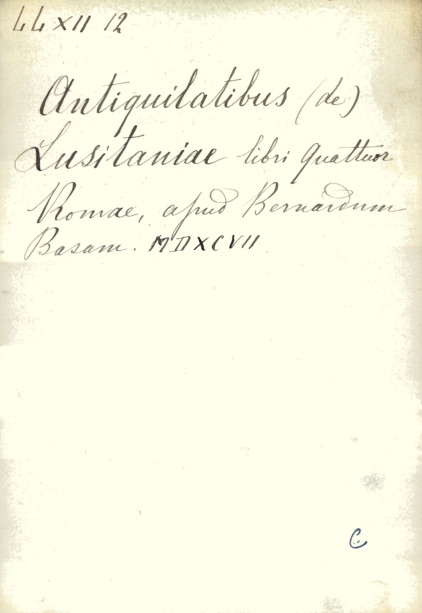 LL XII 12
Antiquitatibus (de)
Lusitaniae libri Quattuor
Romae, apud Bernardum
Basam. MDXCVII
C.